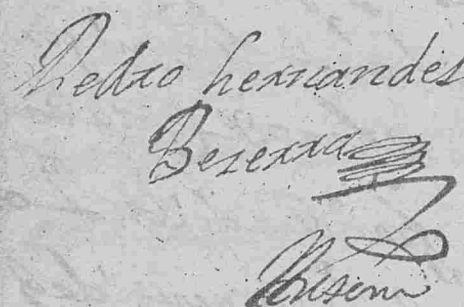 Pedro hernandes
Bezerra